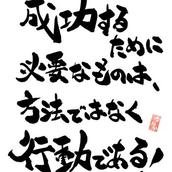 成功する
ために
必要なものは、
方法ではなく
行動である!